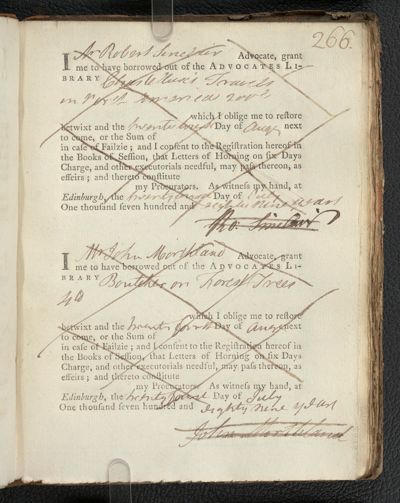 266.
I Mr Robert Sinclair Advocate, grant
me to have borrowed out of the ADVOCATES LI-
BRARY Chastelux's Travels
in North America 2 vols
which I oblige me to restore
betwixt and the twenty second Day of Augt next
to come, or the Sum of
in case of Failzie; and I consent to the Registration hereof in
the Books of Session, that Letters of Horning on six Days
Charge, and other executorials needful, may pass thereon, as
effeirs; and thereto constitute
my Procurators. As witness my hand, at
Edinburgh, the twenty second Day of July
One thousand seven hundred and eighty nine years
Ro. Sinclair
I Mr John Morthland Advocate, grant
me to have borrowed out of the ADVOCATES LI-
BRARY Boutcher on Forest Trees
4to
which I oblige me to restore
betwixt and the twenty Day of Augt next
to come, or the Sum of
in case of Failzie; and I consent to the Registration hereof in
the Books of Session, that Letters of Horning on six Days
Charge, and other executorials needful, may pass thereon, as
effeirs; and thereto constitute
my Procurators. As witness my hand, at
Edinburgh, the twenty Day of July
One thousand seven hundred and eighty nine years
John Morthland